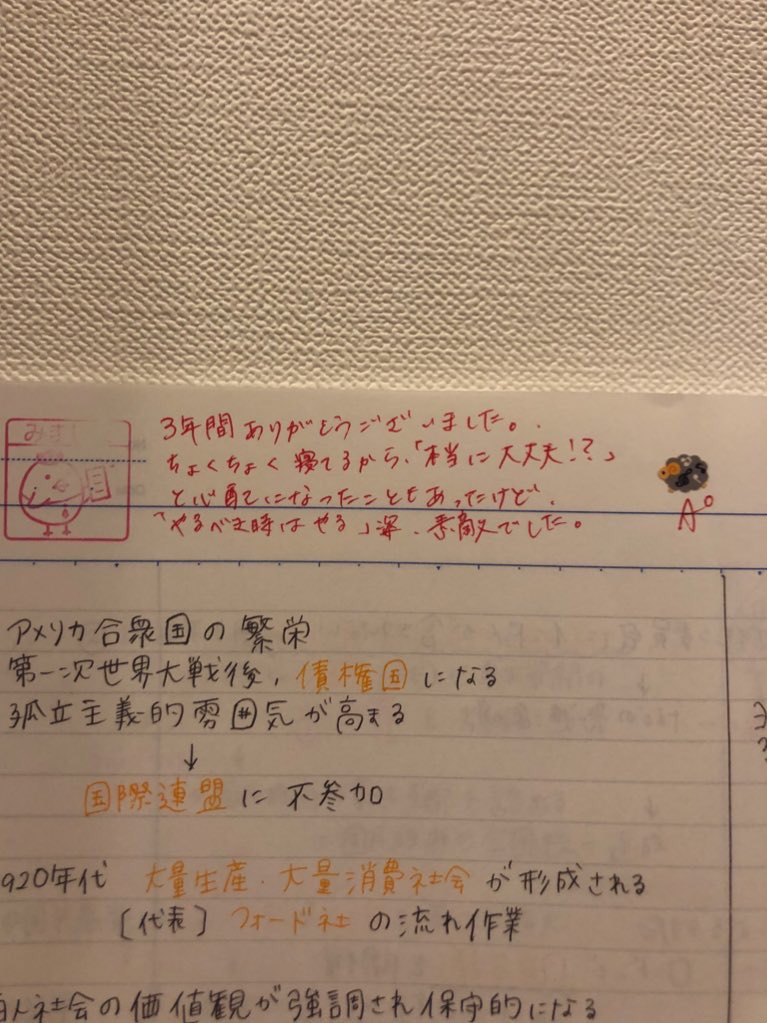 3年間ありがとうございました。
ちょくちょく寝てるから、「本当に大丈夫!?」
と心配になったこともあったけど、
「やるべき時はやる」深、素敵でした。
A°
アメリカ合衆国の繁栄
第一次世界大戦後，債権国になる
孤立主義的雰囲気が高まる
↓
国際連盟に不参加
920年代 大量生産・大量消費社会が形成される
［代表］フォード社の流れ作業
白人社会の価値観が強調され保守的になる